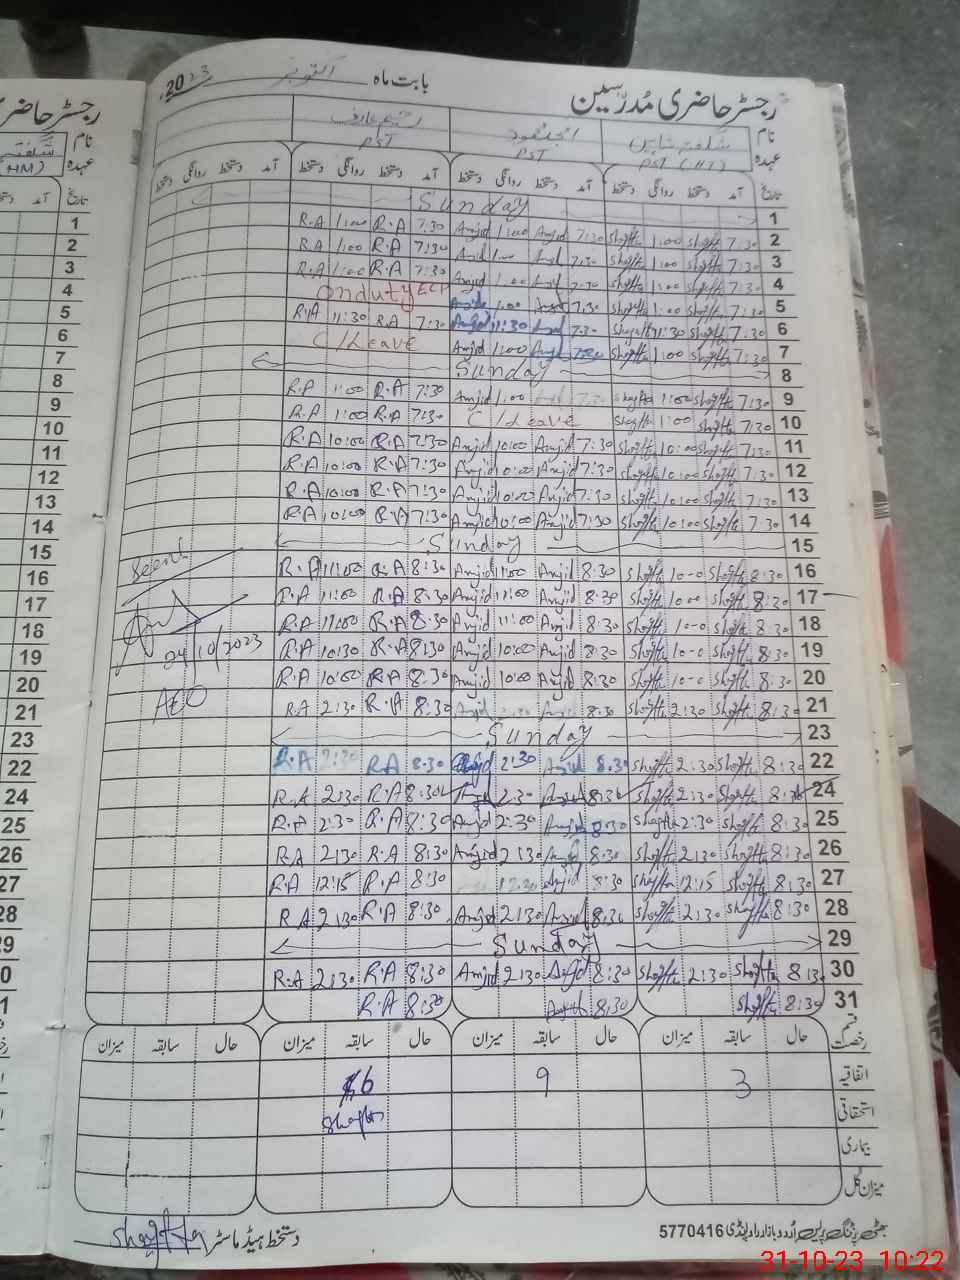 رجسٹر حاضری مُدرّسین
بابت ماہ اکتوبر 2023
نام شگفتہ شاہین امجد محمود رحیم عارف
عہدہ PST (HT) PST PST
تاریخ آمد دستخط روانگی دستخط آمد دستخط روانگی دستخط آمد دستخط روانگی دستخط آمد دستخط
1 Sunday
2 7:30 Shgfta 1:00 Shgfta 7:30 Amjid 1:00 Amjid 7:30 R.A 1:00 R.A
3 7:30 Shgfta 1:00 Shgfta 7:30 1:00 Amjid 7:30 R.A 1:00 R.A
4 7:30 Shgfta 1:00 Shgfta 7:30 1:00 Amjid 7:30 R.A 1:00 R.A
5 7:30 Shgfta 1:00 Shgfta 7:30 1:00 On duty ECP
6 7:30 Shgfta 11:30 Shgfta 7:30 11:30 Amjid 7:30 R.A 11:30 R.A
7 7:30 Shgfta 1:00 Shgfta 7:30 Amjid 1:00 Amjid C/Leave
8 Sunday
9 7:30 Shgfta 1:00 Shgfta 7:30 1:00 Amjid 7:30 R.A 1:00 R.A
10 7:30 Shgfta 1:00 Shgfta C/Leave 7:30 R.A 1:00 R.A
11 7:30 Shgfta 10:00 Shgfta 7:30 Amjid 10:00 Amjid 7:30 R.A 10:00 R.A
12 7:30 Shgfta 10:00 Shgfta 7:30 Amjid 10:00 Amjid 7:30 R.A 10:00 R.A
13 7:30 Shgfta 10:00 Shgfta 7:30 Amjid 10:00 Amjid 7:30 R.A 10:00 R.A
14 7:30 Shgfta 10:00 Shgfta 7:30 Amjid 10:00 Amjid 7:30 R.A 10:00 R.A
15 Sunday
16 8:30 Shgfta 10-0 Shgfta 8:30 Amjid 11:00 Amjid 8:30 R.A 11:00 R.A
17 8:30 Shgfta 10:00 Shgfta 8:30 Amjid 11:00 Amjid 8:30 R.A 11:00 R.A
18 8:30 Shgfta 10-0 Shgfta 8:30 Amjid 11:00 Amjid 8:30 R.A 11:00 R.A
19 8:30 Shgfta 10-0 Shgfta 8:30 Amjid 10:00 Amjid 8:30 R.A 10:30 R.A
20 8:30 Shgfta 10-0 Shgfta 8:30 Amjid 10:00 Amjid 8:30 R.A 10:00 R.A
21 8:30 Shgfta 2:30 Shgfta 8:30 Amjid 2:30 Amjid 8:30 R.A 2:30 R.A
23 Sunday
22 8:30 Shgfta 2:30 Shgfta 8:30 Amjid 2:30 Amjid 8:30 R.A 2:30 R.A
24 8:30 Shgfta 2:30 Shgfta 8:30 Amjid 2:30 8:30 R.A 2:30 R.A
25 8:30 Shgfta 2:30 Shgfta 8:30 Amjid 2:30 Amjid 8:30 R.A 2:30 R.A
26 8:30 Shgfta 2:30 Shgfta 8:30 Amjid 2:30 Amjid 8:30 R.A 2:30 R.A
27 8:30 Shgfta 12:15 Shgfta 8:30 Amjid 12:30 8:30 R.A 12:15 R.A
28 8:30 Shgfta 2:30 Shgfta 8:30 Amjid 2:30 Amjid 8:30 R.A 2:30 R.A
29 Sunday
30 8:30 Shgfta 2:30 Shgfta 8:30 Amjid 2:30 Amjid 8:30 R.A 2:30 R.A
31 8:30 Shgfta 8:30 8:30 R.A
Seen
24/10/2023
AEO
قسم رخصت حال سابقہ میزان حال سابقہ میزان حال سابقہ میزان حال سابقہ میزان
اتفاقیہ 3 9 6
استحقاقی Shgfta
بیماری
میزان کل
دستخط ہیڈ ماسٹر Shagufta
بھٹی پرنٹنگ پریس اُردو بازار راولپنڈی 5770416
31-10-23 10:22